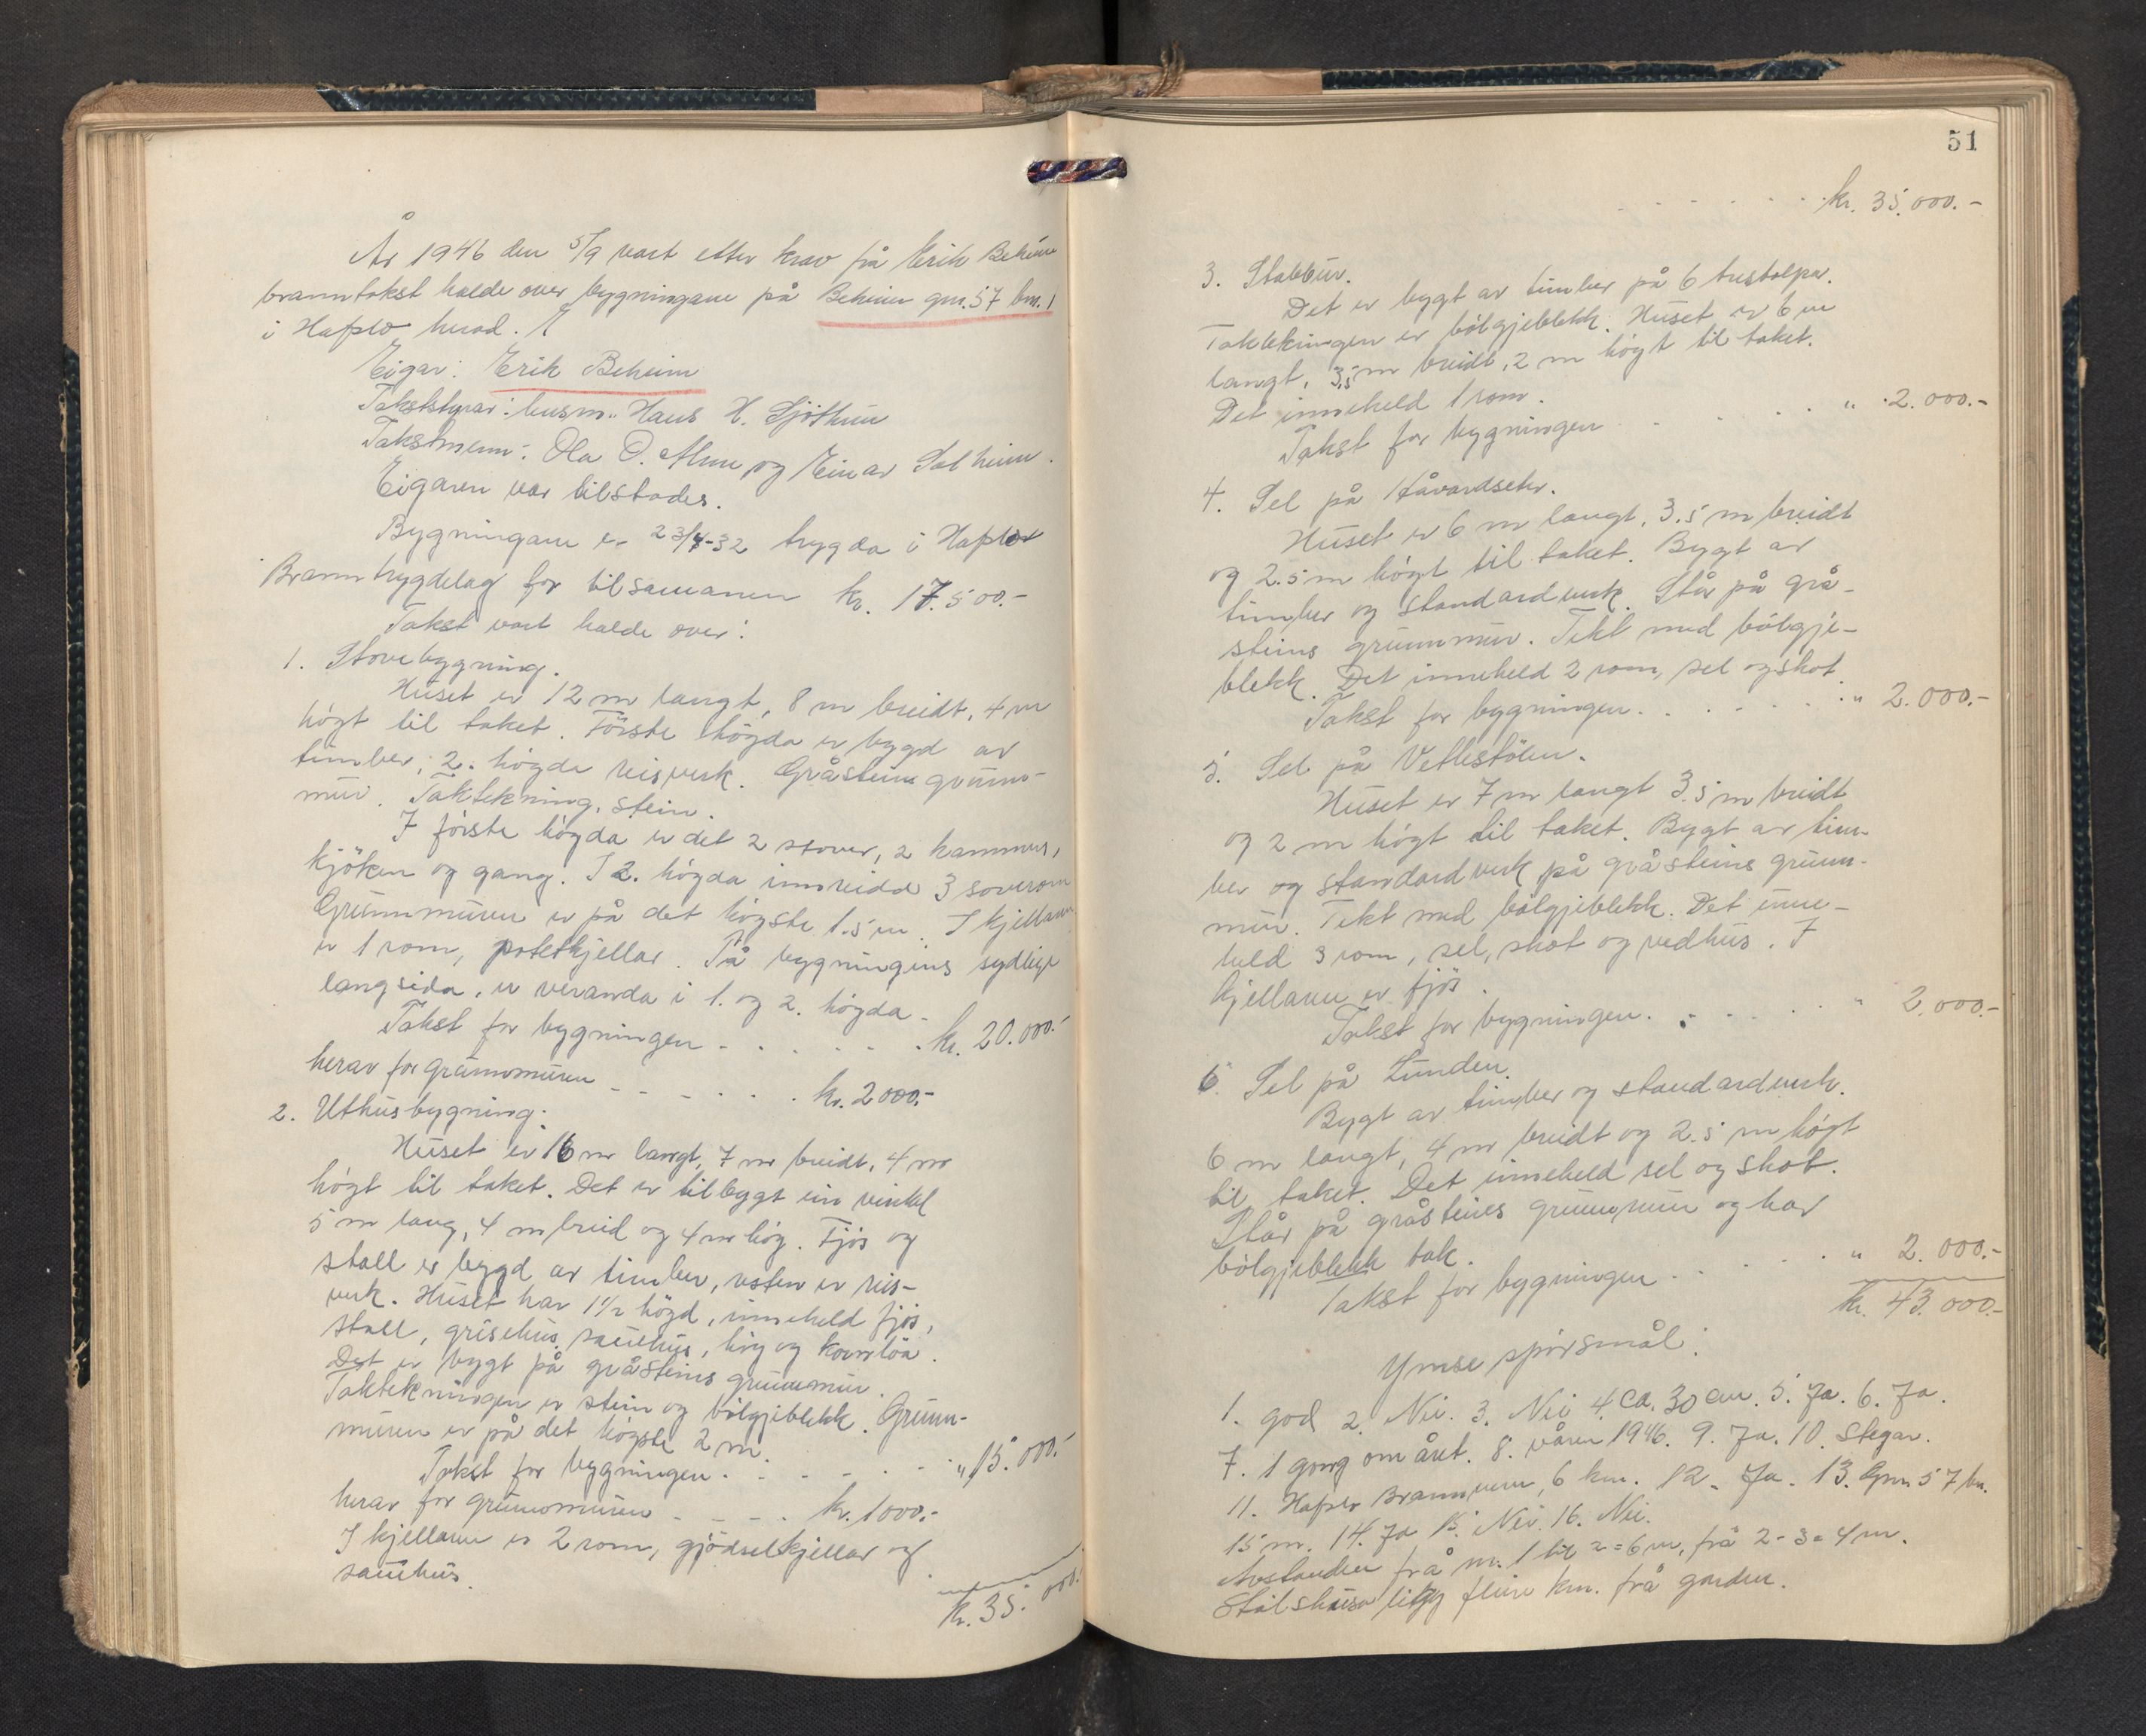 År 1946 den 5/9 vart etter krav frå Erik Beheim
branntakst halde over bygningane på Beheim gnr. 57 bnr. 1
i Hafslo herad.
Eigar: Erik Beheim
Takststyrar: lensm. Hans H. Sjöthun
Takstmenn: Ola O. Almo og Einar Solheim.
Eigaren var tilstades.
Bygningane er 23/4-32 trygda i Hafslo
Branntrygdelag for tilsamanen kr. 17.500.-
Takst vart halde over:
1. Stovebygning.
Huset er 12 m langt, 8 m breidt, 4 m
högt til taket. Förste högda er bygd av
timber, 2. högda reisverk. Gråsteins grunn-
mur. Taktekning, stein.
I förste högda er det 2 stover, 2 kammers,
kjöken og gang. I 2. högda innreidd 3 soverom
Grunnmuren er på det högste 1.5 m. I kjellaren
er 1 rom, potetkjellar. På bygningens sydlige
langsida, er veranda i 1. og 2. högda.
Takst for bygningen - . . . . . kr. 20.000.-
herav for grunnmuren - - - . . . kr. 2000.-
2. Uthusbygning.
Huset er 16 m langt, 7 m breidt, 4 m
högt til taket. Det er tilbygt ein vinkel
5 m lang, 4 m breid og 4 m hög. Fjös og
stall er bygd av timber, resten er reis-
verk. Huset har 1 1/2 högd, inneheld fjös,
stall, grisehus, sauehus, höy og kornlöa.
Det er bygt på gråsteins grunnmur.
Taktekningen er stein og bölgjeblekk. Grunn-
muren er på det högste 2 m.
Takst for bygningen . . . . . . " 15.000.-
herav for grunnmuren - - . . kr. 1000.-
I kjellaren er 2 rom, gjödselkjellar og
sauehus.
kr. 35.000.-
51
. . . . . . kr. 35.000.-
3. Stabbur.
Det er bygt av timber på 6 trestolpar.
Taktekningen er bölgjeblekk. Huset er 6 m
langt, 3,5 m breidt, 2 m högt til taket.
Det inneheld 1 rom.
Takst for bygningen . . . . . " 2.000.-
4. Sel på Håvardsete.
Huset er 6 m langt, 3.5 m breidt
og 2.5 m högt til taket. Bygt av
timber og standardverk. Står på grå-
steins grunnmur. Tekt med bölgje-
blekk. Det inneheld 2 rom, sel og skot
Takst for bygningen . . . . . . " 2.000.-
5. Sel på Vetlestölen.
Huset er 7 m langt 3.5 m breidt
og 2 m högt til taket. Bygt av tim-
ber og standardverk på gråsteins grunn-
mur. Tekt med bölgjeblekk. Det inne-
held 3 rom, sel, skot og vedhus. I
kjellaren er fjös.
Takst for bygningen . . . . . " 2.000.-
6. Sel på Lunden.
Bygt av timber og standardverk.
6 m langt, 4 m breidt og 2.5 m högt
til taket. Det inneheld sel og skot.
Står på gråsteins grunnmur og har
bölgjeblekk tak.
Takst for bygningen . . . . . " 2.000.-
kr. 43.000.-
Ymse spörsmål:
1. god 2. Nei. 3. Nei 4. ca. 30 cm. 5. Ja. 6. Ja.
7. 1 gong om året. 8. våren 1946. 9. Ja. 10. Stegar.
11. Hafslo Brannvern, 6 km. 12. Ja. 13. Gnr 57 bn.
15 m. 14. Ja 15. Nei. 16. Nei.
Avstanden frå nr. 1 til 2 = 6 m, frå 2 - 3 = 4 m.
Stölshusa ligg fleire km. frå garden.